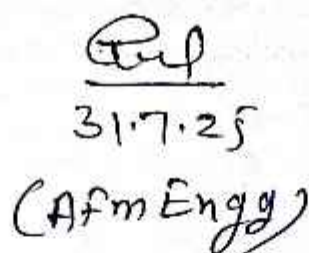 31.7.25
(AFM Engg)